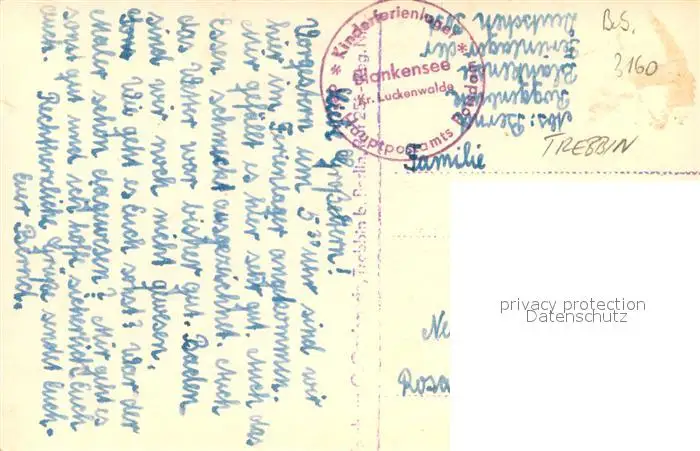 Liebe Großeltern!
Vorgestern um 5³⁰ Uhr sind wir
hier im Ferienlager angekommen.
Mir gefällt es hier sehr gut. Auch das
Essen schmeckt ausgezeichnet. Auch
das Wetter war bisher gut. Baden
sind wir noch nicht gewesen.
Wie geht es Euch sonst? War der
Maler schon dagewesen? Mir geht es
sonst gut und ich hoffe sicherlich Euch
auch. Recht herzliche Grüße sendet Euch
Euer Bernd.
* Kinderferienlager *
Blankensee
Kr. Luckenwalde
Hauptpostamts Potsdam
Abs. Bernd
Blankensee
Ferienlager der
Deutschen Post
B.S.
3160
TREBBIN
Familie
Ne
Rosa
Trebbin b. Berlin
privacy protection
Datenschutz